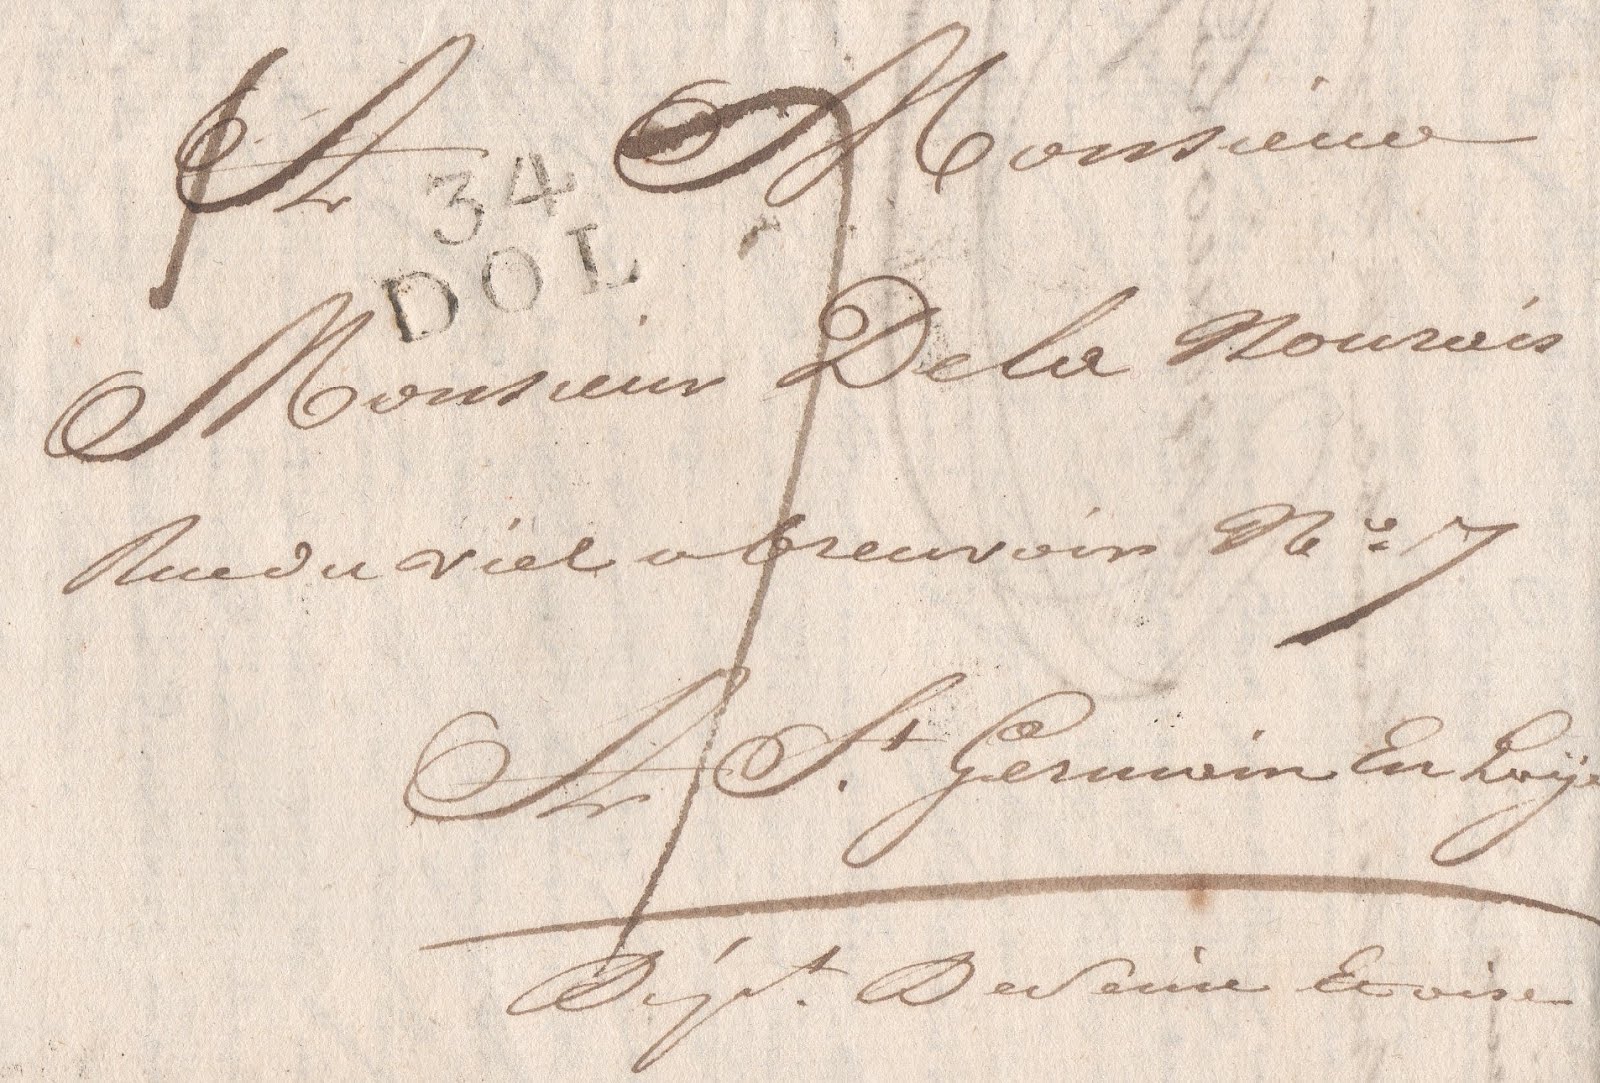 A Monsieur
34
DOL
Monsieur De la Nourais
Rue du viel abreuvoir No 7
A St. Germain En Laye
Dépt. De Seine Et oise